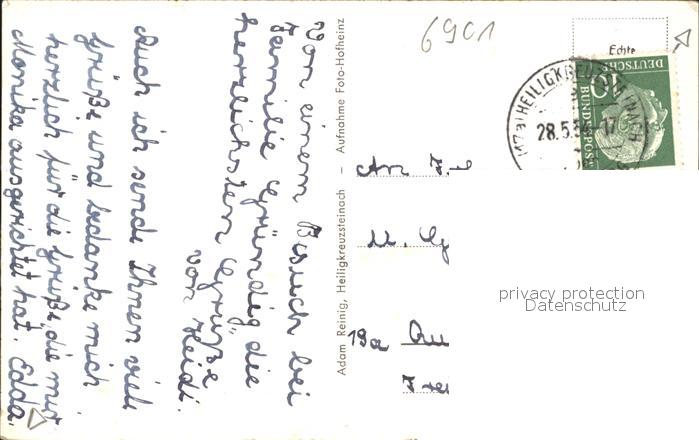 Von einem Besuch bei
Familie Gründig die
herzlichsten Grüße
von Heidi.
Auch ich sende Ihnen viele
Grüße und bedanke mich
herzlich für die Grüße, die mir
Monika ausgerichtet hat. Edda.
Adam Reinig, Heiligkreuzsteinach — Aufnahme Foto-Hofheinz
6901
Echte
DEUTSCHE
BUNDESPOST
10
HEILIGKREUZSTEINACH
28.5.56-17
An F
u. G
19a
privacy protection
Datenschutz